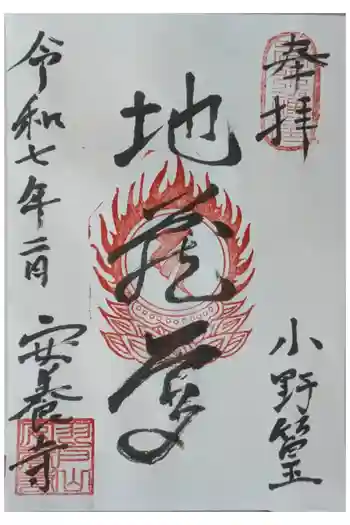 奉拝
小野篁
地蔵尊
令和七年二月
安養寺